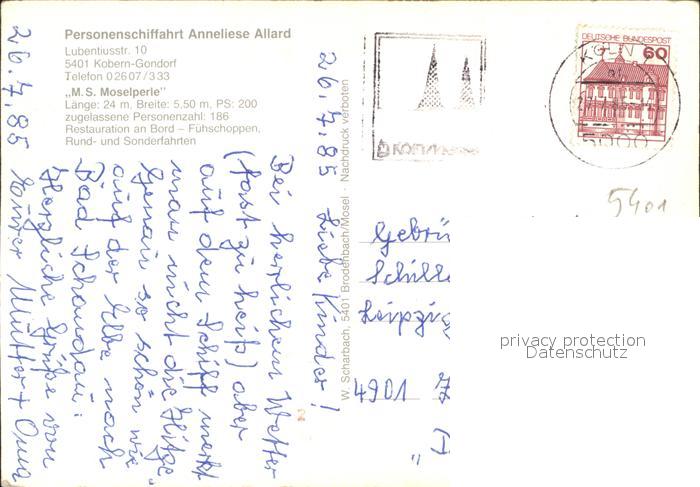 Personenschiffahrt Anneliese Allard
Lubentiusstr. 10
5401 Kobern-Gondorf
Telefon 02607/333
„M.S. Moselperle"
Länge: 24 m, Breite: 5,50 m, PS: 200
zugelassene Personenzahl: 186
Restauration an Bord – Fühschoppen,
Rund- und Sonderfahrten
26.7.85 Liebe Kinder!
Bei herrlichem Wetter
(fast zu heiß) aber
auf dem Schiff merkt
man nicht die Hitze.
Genau so schön wie
auf der Elbe nach
Bad Schandau.
Herzliche Grüße von
Eurer Mutter + Oma
26.7.85
W. Scharbach, 5401 Brodenbach/Mosel · Nachdruck verboten
DEUTSCHE BUNDESPOST
60
KÖLN
5000
5401
Gebrü
Schille
Leipzig
4901 Z
privacy protection
Datenschutz